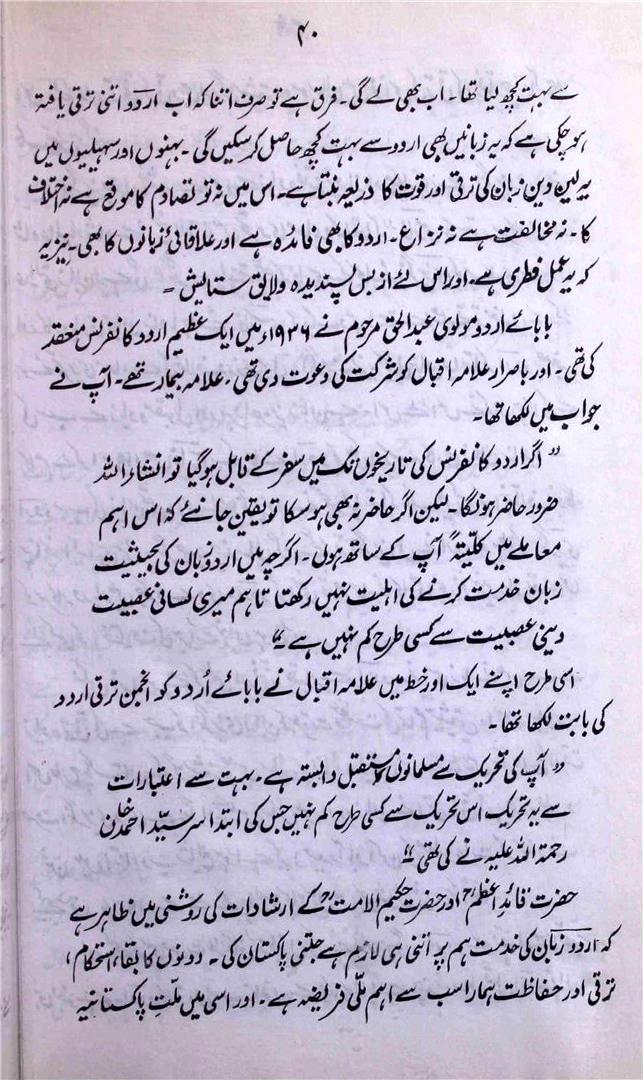 ۴۰
سے بہت کچھ لیا تھا۔ اب بھی لے گی۔ فرق ہے تو صرف اتنا کہ اب اردو اتنی ترقی یافتہ
ہو چکی ہے کہ یہ زبانیں بھی اردو سے بہت کچھ حاصل کر سکیں گی۔ بہنوں اور سہیلیوں میں
یہ لین دین زبان کی ترقی اور قوت کا ذریعہ بنتا ہے۔ اس میں نہ تو تصادم کا موقع ہے نہ اختلاف
کا۔ نہ مخالفت ہے نہ نزاع۔ اردو کا بھی فائدہ ہے اور علاقائی زبانوں کا بھی۔ نیز یہ
کہ یہ عمل فطری ہے۔ اور اس لئے از بس پسندیدہ ولایق ستائیش =
بابائے اردو مولوی عبدالحق مرحوم نے ۱۹۳۶ء میں ایک عظیم اردو کانفرنس منعقد
کی تھی۔ اور باصرار علامہ اقبال کو شرکت کی دعوت دی تھی، علامہ بیمار تھے۔ آپ نے
جواب میں لکھا تھا۔
" اگر اردو کانفرنس کی تاریخوں تک میں سفر کے قابل ہو گیا تو انشاء اللہ
ضرور حاضر ہونگا۔ لیکن اگر حاضر نہ بھی ہو سکا تو یقین جانیئے کہ اس اہم
معاملے میں کلیتہً آپ کے ساتھ ہوں۔ اگرچہ میں اردو زبان کی بحیثیت
زبان خدمت کرنے کی اہلیت نہیں رکھتا تاہم میری لسانی عصبیت
دینی عصبیت سے کسی طرح کم نہیں ہے "
اسی طرح اپنے ایک اور خط میں علامہ اقبال نے بابائے اُردو کو انجمن ترقی اردو
کی بابت لکھا تھا۔
" آپ کی تحریک سے مسلمانوں کا مستقبل وابستہ ہے۔ بہت سے اعتبارات
سے یہ تحریک اس تحریک سے کسی طرح کم نہیں جس کی ابتدا سر سیّد احمد خان
رحمۃ اللہ علیہ نے کی تھی "
حضرت قائدِ اعظمؒ اور حضرت حکیم الامتؒ کے ارشادات کی روشنی میں ظاہر ہے
کہ اردو زبان کی خدمت ہم پر اتنی ہی لازم ہے جتنی پاکستان کی۔ دونوں کا بقاء، استحکام،
ترقی اور حفاظت ہمارا سب سے اہم ملّی فریضہ ہے۔ اور اسی میں ملّتِ پاکستانیہ